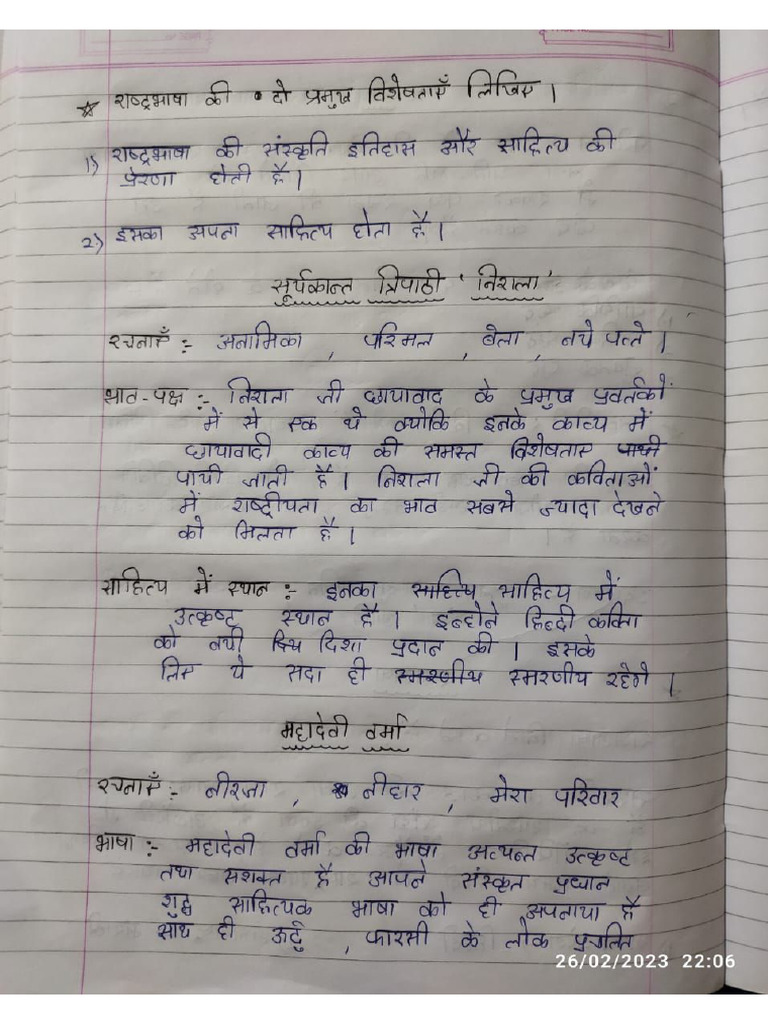 ☆ राष्ट्रभाषा की दो प्रमुख विशेषताएँ लिखिए।
1) राष्ट्रभाषा की संस्कृति इतिहास और साहित्य की
प्रेरणा होती है।
2) इसका अपना साहित्य होता है।
सूर्यकान्त त्रिपाठी 'निराला'
रचनाएँ :- अनामिका , परिमल , बेला , नये पत्ते।
भाव-पक्ष :- निराला जी छायावाद के प्रमुख प्रवर्तकों
में से एक थे क्योकि इनके काव्य में
छायावादी काव्य की समस्त विशेषताए
पायी जाती है। निराला जी की कविताओं
में राष्ट्रीयता का भाव सबसे ज्यादा देखने
को मिलता है।
साहित्य में स्थान :- इनका साहित्य में
उत्कृष्ट स्थान है। इन्होने हिन्दी कविता
को नयी दिशा प्रदान की। इसके
लिए ये सदा ही स्मरणीय रहेगे।
महादेवी वर्मा
रचनाएँ :- नीरजा , नीहार , मेरा परिवार
भाषा :- महादेवी वर्मा की भाषा अत्यन्त उत्कृष्ट
तथा सशक्त है आपने संस्कृत प्रधान
शुद्ध साहित्यक भाषा को ही अपनाया है
साथ ही ऊर्दु , फारसी के लोक प्रचलित
26/02/2023 22:06